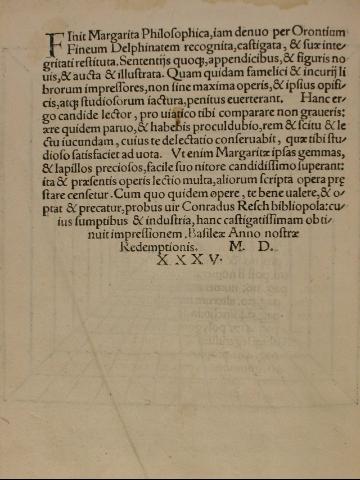 FInit Margarita Philosophica, iam denuo per Orontium
Fineum Delphinatem recognita, castigata, & suæ inte-
gritati restituta. Sententijs quoq;, appendicibus, & figuris no
uis, & aucta & illustrata. Quam quidam famelici & incurij li
brorum impressores, non sine maxima operis, & ipsius opifi-
cis, atq; studiosorum iactura, penitus euerterant. Hanc er-
go candide lector, pro uiatico tibi comparare non graueris:
ære quidem paruo, & habebis proculdubio, rem & scitu & le
ctu iucundam, cuius te delectatio conseruabit, quæ tibi stu-
dioso satisfaciet ad uota. Vt enim Margaritæ ipsas gemmas,
& lapillos preciosos, facile suo nitore candidissimo superant:
ita & præsentis operis lectio multa, aliorum scripta opera pre
stare censetur. Cum quo quidem opere, te bene ualere, & o-
ptat & precatur, probus uir Conradus Resch bibliopola: cu-
ius sumptibus & industria, hanc castigatissimam obti-
nuit impressionem, Basileæ Anno nostræ
Redemptionis. M. D.
X X X V.